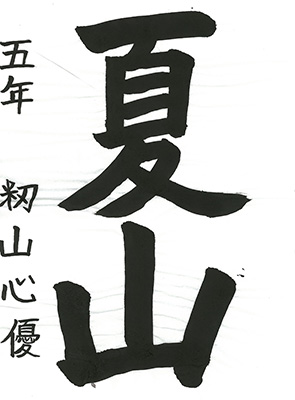 夏山
五年 籾山心優